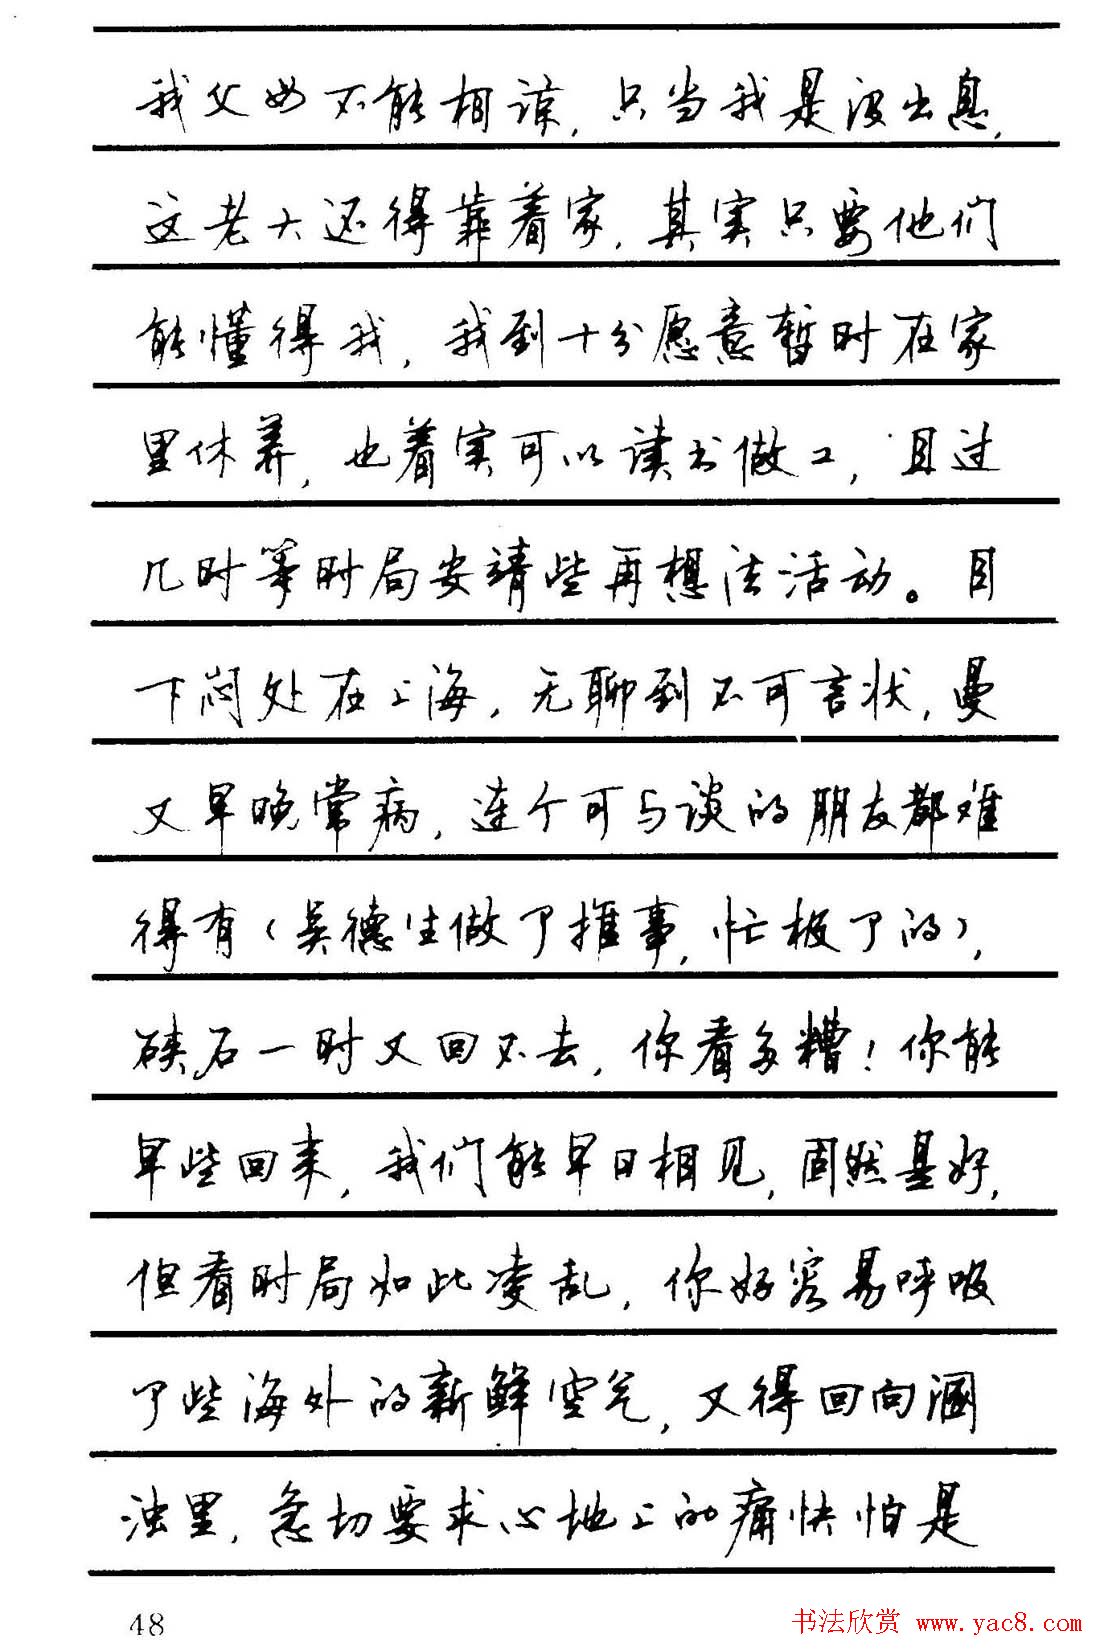 我父母不能相谅,只当我是没出息,
这老大还得靠着家,其实只要他们
能懂得我,我到十分愿意暂时在家
里休养,也着实可以读书做工,且过
几时等时局安靖些再想法活动。目
下闷处在上海,无聊到不可言状,曼
又早晚常病,连个可与谈的朋友都难
得有(吴德生做了推事,忙极了的),
硖石一时又回不去,你看多糟!你能
早些回来,我们能早日相见,固然是好,
但看时局如此凌乱,你好容易呼吸
了些海外的新鲜空气,又得回向溷
浊里,急切要求心地上的痛快怕是
48
书法欣赏 www.yac8.com